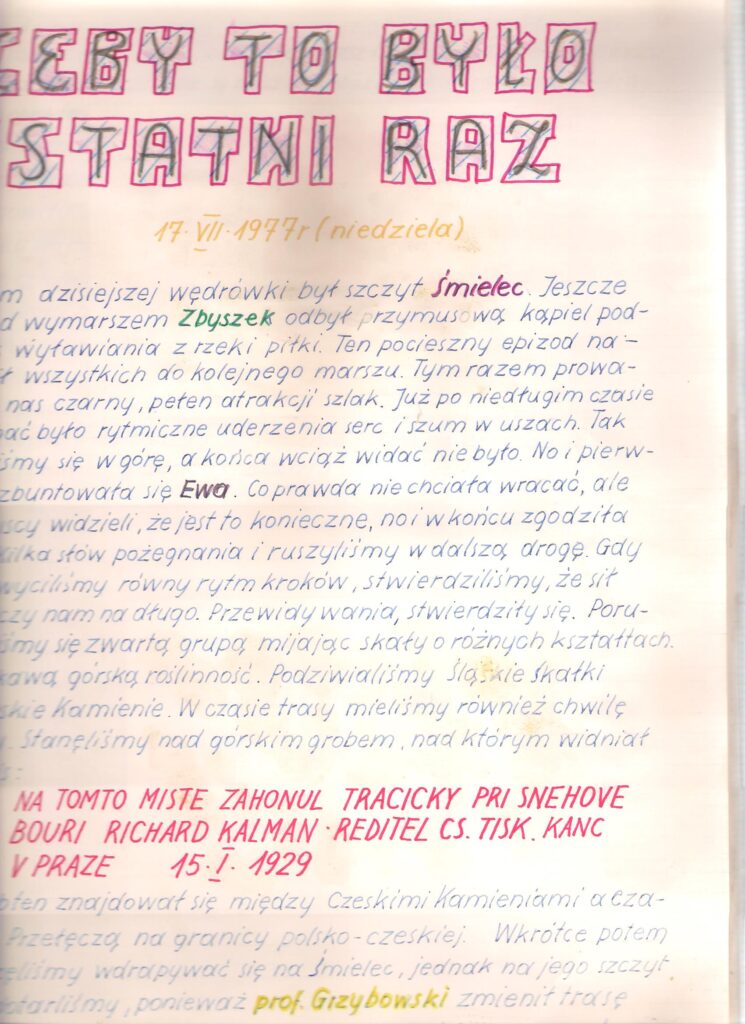 ŻEBY TO BYŁO
STATNI RAZ
17·VII·1977r (niedziela)
m dzisiejszej wędrówki był szczyt Śmielec. Jeszcze
d wymarszem Zbyszek odbył przymusową kąpiel pod-
wyławiania z rzeki piłki. Ten pocieszny epizod na-
ł wszystkich do kolejnego marszu. Tym razem prowa-
nas czarny, pełen atrakcji szlak. Już po niedługim czasie
ać było rytmiczne uderzenia serc i szum w uszach. Tak
iśmy się w górę, a końca wciąż widać nie było. No i pierw-
zbuntowała się Ewa. Co prawda nie chciała wracać, ale
scy widzieli, że jest to konieczne, no i w końcu zgodziła
kilka słów pożegnania i ruszyliśmy w dalszą drogę. Gdy
wyciliśmy równy rytm kroków, stwierdziliśmy, że sił
czy nam na długo. Przewidywania, stwierdziły się. Poru-
iśmy się zwartą grupą mijając skały o różnych kształtach.
kawą górską roślinność. Podziwialiśmy Śląskie Skałki
skie Kamienie. W czasie trasy mieliśmy również chwilę
. Stanęliśmy nad górskim grobem, nad którym widniał
s:
NA TOMTO MISTE ZAHONUL TRACICKY PRI SNEHOVE
BOURI RICHARD KALMAN · REDITEL CS. TISK. KANC
V PRAZE 15·I·1929
ten znajdował się między Czeskimi Kamieniami a Cza-
Przełęczą na granicy polsko-czeskiej. Wkrótce potem
ęliśmy wdrapywać się na Śmielec, jednak na jego szczyt
otarliśmy, ponieważ prof. Grzybowski zmienił trasę